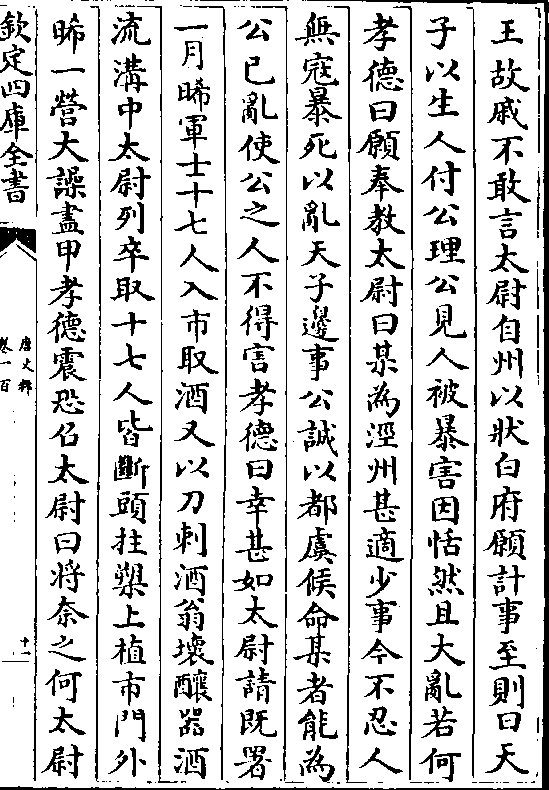 王故戚不敢言太尉自州以狀白府願計事至則曰天
子以生人付公理公見人被暴害因恬然且大亂若何
孝德曰願奉教太尉曰某為涇州甚適少事今不忍人
無寇暴死以亂天子邊事公誠以都虞候命某者能為
公已亂使公之人不得害孝德曰幸甚如太尉請既署
一月晞軍士十七人入市取酒又以刀刺酒翁壞釀器酒
流溝中太尉列卒取十七人皆斷頭拄槊上植市門外
晞一營大譟盡甲孝德震恐召太尉曰將奈之何太尉
欽定四庫全書
唐文粹
卷一百
十一